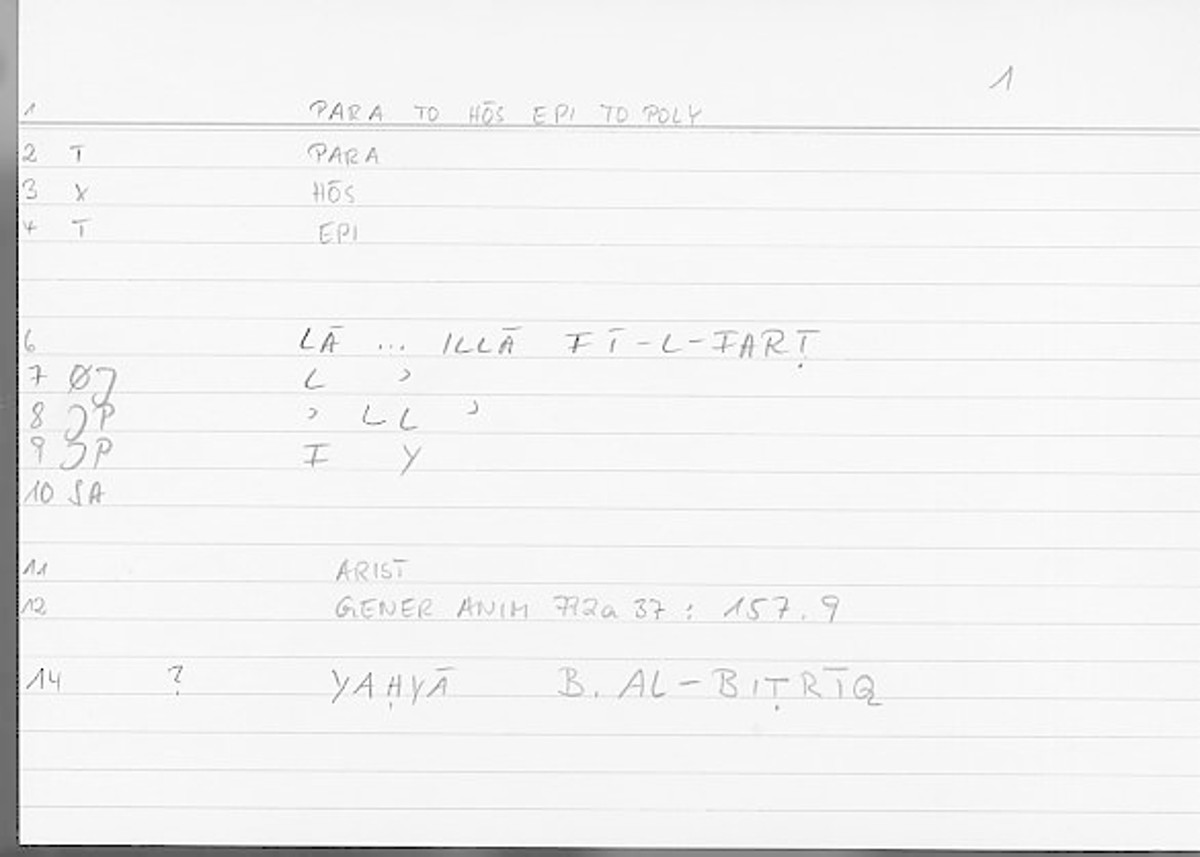 1
1 PARA TO HŌS EPI TO POLY
2 T PARA
3 X HŌS
4 T EPI
6 LĀ ... ILLĀ FĪ-L-FARṬ
7 L ʾ
8 P ʾ LL ʾ
9 P F Y
10 SA
11 ARIST
12 GENER ANIM 772a 37 : 157.9
14 ? YAḤYĀ B. AL-BIṬRĪQ